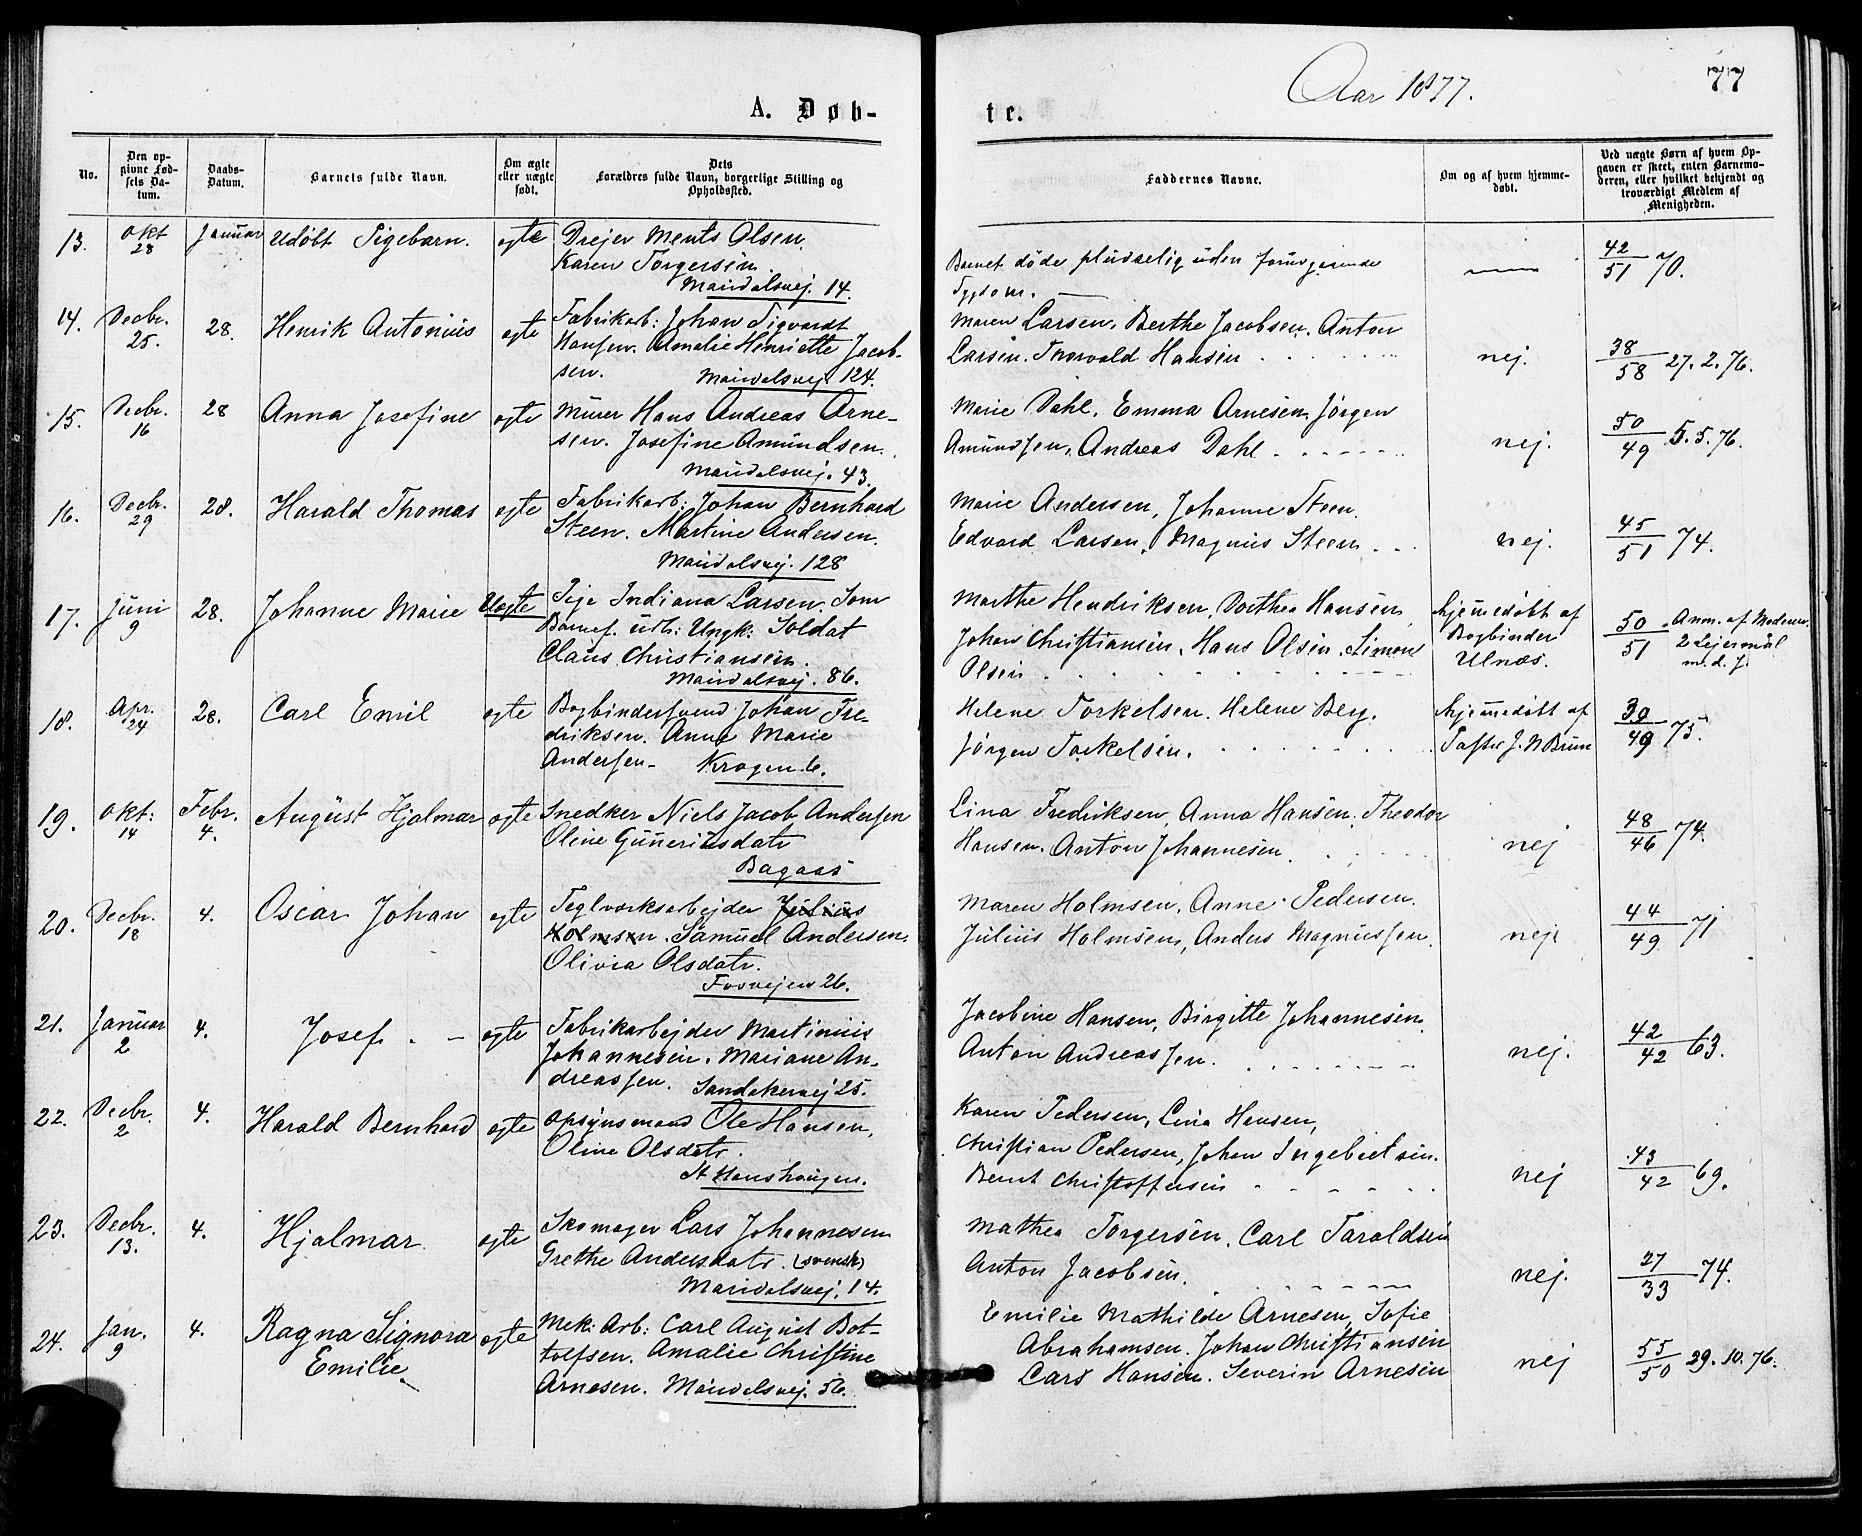 Aar 1877.
77
A. Døb-
te.
No.
Den op-
givne Fød-
sels Da-
tum.
Daabs-
Datum.
Barnets fulde Navn.
Om ægte
eller uægte
født.
Dets
Forældres fulde Navn, borgerlige Stilling og
Opholdssted.
Faddernes Navne.
Om og af hvem hjemme-
døbt.
Ved uægte Børn af hvem Op-
gaven er skeet, enten Barnemo-
deren, eller hvilket bekjendt og
troværdigt Medlem af
Menigheden.
13. Okt 28 Januar Udøbt Pigebarn. ægte
Drejer Ments Olsen.
Karen Torgersen.
Maridalsvej. 14.
Barnet døde pludselig uden forudgaaende
Sygdom. —
42/51 70.
14. Decbr. 25. 28. Henrik Antonius ægte
Fabrikarb: Johan Sigvardt
Hansen. Amalie Henriette Jacob-
sen.
Maridalsvej 124.
Maren Larsen, Berthe Jacobsen. Anton
Larsen. Thorvald Hansen
nej.
38/58 27.2.76.
15. Decbr. 16 28 Anna Josefine ægte
Murer Hans Andreas Arne-
sen. Josefine Amundsen.
Maridalsvej. 43.
Marie Dahl. Emma Arnesen. Jörgen
Amundsen, Andreas Dahl
nej.
50/49 5.5.76.
16. Decbr. 29 28. Harald Thomas ægte
Fabrikarb: Johan Bernhard
Steen. Martine Andersen.
Maridalsvej. 128
Marie Andersen, Johanne Steen.
Edvard Larsen, Magnus Steen
nej.
45/51 74.
17. Juni 9 28. Johanne Marie Uægte
Pige Indiana Larsen. Som
Barnef. udl: Ungk: Soldat
Claus Christiansen.
Maridalsvej. 86.
Marthe Hendriksen, Dorthea Hansen
Johan Christiansen, Hans Olsen. Simon
Olsen
hjemmedøbt af
Bogbinder
Ulnæs.
50/51 Anm. af Moderen.
2 Lejermål
m. d. f.
18. Apr. 24 28. Carl Emil ægte
Bogbindersvend Johan Fre-
driksen. Anne Marie
Andersen- Krogen 6.
Helene Torkelsen. Helene Berg.
Jørgen Torkelsen.
hjemmedøbt af
Pastor J. N Brun
30/49 75.
19. Okt: 14 Febr. 4. August Hjalmar ægte
Snedker Niels Jacob Andersen
Oline Guneriusdatr
Bagaas
Lina Fredriksen, Anna Hansen. Theodor
Hansen. Anton Johannesen.
nej
48/46 74.
20. Decbr. 18 4. Oscar Johan ægte
Teglværksarbejder Julius
Holmsen. Samuel Andersen.
Olivia Olsdatr.
Fosvejen 26.
Maren Holmsen, Anne Pedersen.
Julius Holmsen, Anders Magnussen.
nej
44/49 71
21. Januar 2 4. Josef. ægte
Fabrikarbejder Martinius
Johannesen. Mariane An-
dreassen. Sandakervej 25.
Jacobine Hansen, Birgitte Johannesen
Anton Andreassen.
nej.
42/42 63.
22. Decbr. 2 4. Harald Bernhard ægte
Opsynsmand Ole Hansen,
Oline Olsdatr.
St Hanshaugen.
Karen Pedersen, Lina Hansen,
Christian Pedersen, Johan Ingebretsen.
Bernt Christoffersen
nej
43/42 69.
23. Decbr. 13. 4. Hjalmar ægte
Skomager Lars Johannesen
Grethe Andersdatr. (svensk)
Maridalsvej. 14.
Mathea Torgersen, Carl Taraldsen
Anton Jacobsen.
nej.
27/33 74.
24. Jan. 9 4. Ragna Signora
Emilie ægte
Mek: Arb: Carl August Bot-
tolfsen. Amalie Christine
Arnesen. Maridalsvej. 56.
Emilie Mathilde Arnesen, Sofie
Abrahamsen. Johan Christiansen
Lars Hansen. Severin Arnesen
nej
55/50 29.10.76.